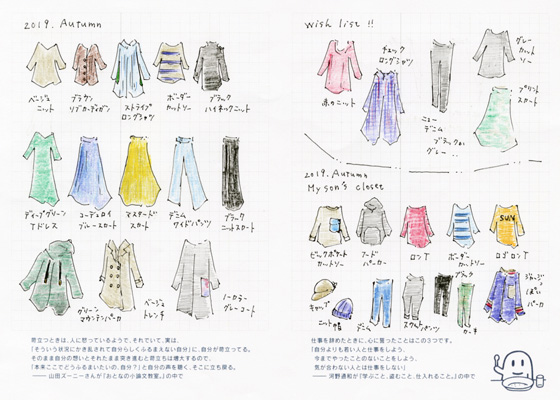 2019. Autumn
ベージュ
ニット
ブラウン
リブカーディガン
ストライプ
ロングシャツ
ボーダー
カットソー
ブラック
ハイネックニット
ディープグリーン
Tドレス
コーデュロイ
ブルースカート
マスタード
スカート
デニム
ワイドパンツ
ブラック
ニットスカート
グリーン
マウンテンパーカ
ベージュ
トレンチ
ノーカラー
グレーコート
苛立つときは、人に怒っているようで、それでいて、実は、
「そういう状況にかき乱されて自分らしくふるまえない自分」に、自分が苛立ってる。
そのまま自分の想いとそれたまま突き進むと苛立ちは増えするので、
「本来ここでどうふるまいたいの、自分？」と自分の声を聴く、そこに立ち戻る。
―― 山田ズーニーさんが「おとなの小論文教室。」の中で
wish list !!
赤のニット
チェック
ロングシャツ
ニュー
デニム
ブラックor
グレー
グレー
カットソー
プリント
スカート
2019. Autumn
My son's closet
ビッグポケット
カットソー
フード
パーカー
ロンT
ボーダー
カットソー
SUN
ロゴロンT
キャップ
ニット帽
デニム
スウェットパンツ
ブラック
カーキ
ジャージ
っぽい
パーカ
仕事を辞めたときに、心に誓ったことはこの3つです。
「自分よりも若い人と仕事をしよう、
今までやったことのないことをしよう、
気が合わない人とは仕事をしない」
―― 河野通和が「学ぶこと、盗むこと、仕入れること。」の中で